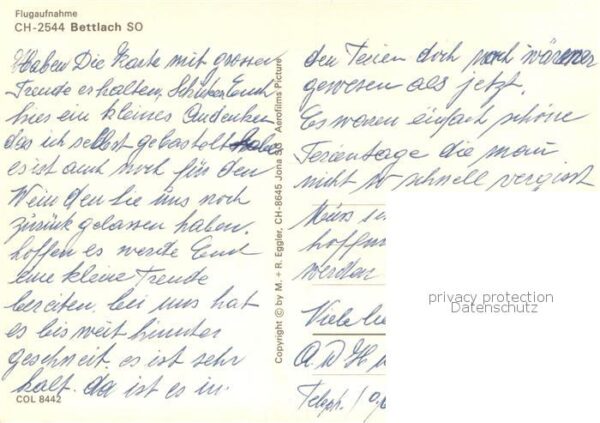 Flugaufnahme
CH-2544 Bettlach SO
Haben Die Karte mit grossen
Freude erhalten, Schicken Euch
hier ein kleines Andenken
das ich selbst gebastelt habe
es ist auch noch für den
Wein den Sie uns noch
zürück gelassen haben.
hoffen es werde Euch
eine kleine Freude
bereiten. bei uns hat
es bis weit hinunter
geschneit. es ist sehr
kalt. da ist es in
COL 8442
Copyright © by M. + R. Eggler, CH-8645 Jona SG Aerofilms Picture
den Ferien doch noch wärmer
gewesen als jetzt.
Es waren einfach schöne
Ferientage die man
nicht so schnell vergisst
hoffen
werden
privacy protection
Datenschutz
Viele
Teleph.